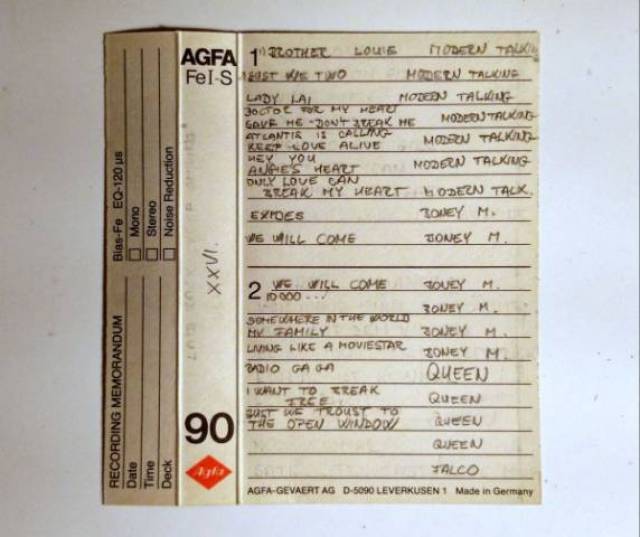 RECORDING MEMORANDUM Bias-Fe EQ-120 µs
Date
Mono
Time
Stereo
Deck
Noise Reduction
AGFA
FeI-S
XXVI.
90
Agfa
1
BROTHER LOUIE MODERN TALKING
JUST WE TWO MODERN TALKING
LADY LAI MODERN TALKING
DOCTOR FOR MY HEART
GAVE ME - DON'T BREAK ME MODERN TALKING
ATLANTIS IS CALLING MODERN TALKING
KEEP LOVE ALIVE
HEY YOU MODERN TALKING
ANGIE'S HEART
ONLY LOVE CAN
BREAK MY HEART MODERN TALK.
EXODES BONEY M.
WE WILL COME BONEY M.
2
WE WILL COME BONEY M.
10 000 ... BONEY M.
SOMEWHERE IN THE WORLD
MY FAMILY BONEY M.
LIVING LIKE A MOVIESTAR BONEY M.
RADIO GA GA QUEEN
I WANT TO BREAK
FREE QUEEN
JUST WE TROUST TO
THE OPEN WINDOW QUEEN
QUEEN
FALCO
AGFA-GEVAERT AG D-5090 LEVERKUSEN 1 Made in Germany